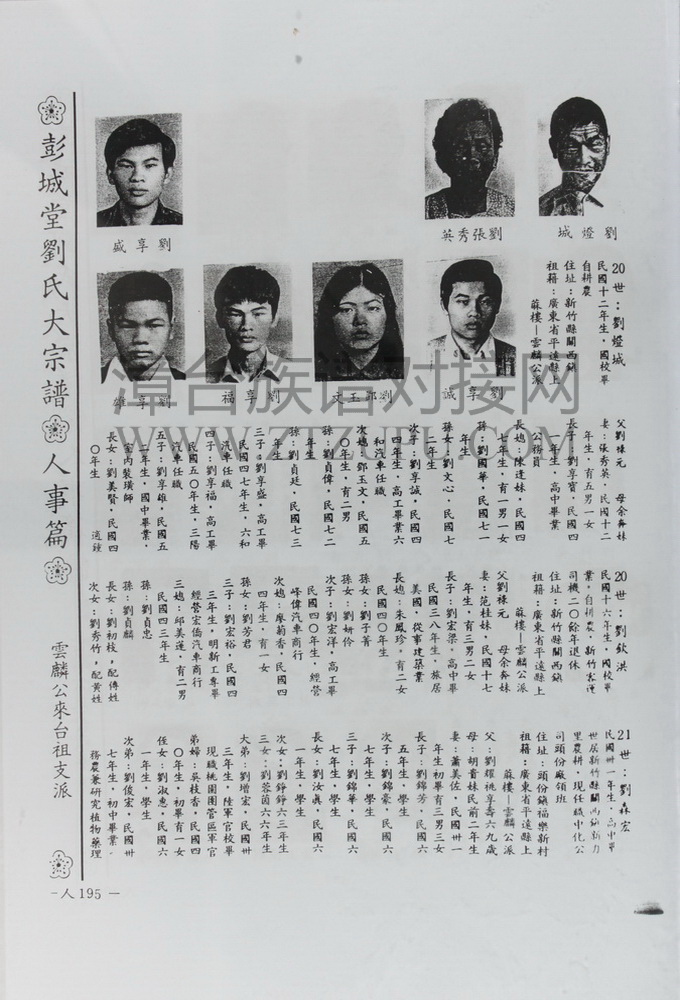 劉燈城
劉張秀英
劉享盛
劉享誠
劉鄧玉文
劉享福
劉享雄
20世：劉燈城
民國十二年生，國校畢
自耕農
住址：新竹縣關西鎮
祖籍：廣東省平遠縣上
蘇樓－雲麟公派
父劉椽元　母余奔妹
妻：張秀英，民國十二
年生，有五男一女
長子：劉享寶，民國四
一年生，高中畢業
公務員
長媳：陳逢妹，民國四
七年生，有一男一女
孫：劉國華，民國七一
年生
孫女：劉文心，民國七
二年生
次子：劉享誠，民國四
四年生，高工畢業六
和汽車任職
次媳：鄧玉文，民國五
〇年生，有二男
孫：劉貞偉，民國七二
年生
孫：劉貞廷，民國七三
年生
三子：劉享盛，高工畢
民國四七年生，六和
汽車任職
四子：劉享福，高工畢
民國五〇年生，三陽
汽車任職
五子：劉享雄，民國五
二年生，國中畢業，
室內裝璜師
長女：劉美賢，民國四
〇年生　　適鍾
20世：劉欽洪
民國十六年生，國校畢
業，自耕農，新竹客運
司機二〇餘年退休
住址：新竹縣關西鎮
祖籍：廣東省平遠縣上
蘇樓－雲麟公派
父劉椽元　母余奔妹
妻：范桂妹，民國十七
年生，有三男二女
長子：劉宏梁，高中畢
民國三八年生，旅居
美國，從事建築業
長媳：朱鳳珍，有二女
民國四〇年生
孫女：劉子菁
孫女：劉妍伶
次子：劉宏洋，高工畢
民國四〇年生，經營
峰偉汽車商行
次媳：廖菊香，民國四
四年生，有一女
孫女：劉芳君
三子：劉宏裕，民國四
三年生，明新工專畢
經營宏僑汽車商行
三媳：邱美蓮，有二男
民國四三年生
孫：劉貞忠
孫：劉貞麟
長女：劉初枝，配傅姓
次女：劉秀竹，配黃姓
21世：劉森宏
民國卅一年生，高中畢
世居新竹縣關西鎮新力
里農耕，現任職中化公
司頭份廠領班
住址：頭份鎮福樂新村
祖籍：廣東省平遠縣上
蘇樓－雲麟公派
父：劉耀桃享壽六九歲
母：胡薈妹民前二年生
妻：蕭美佐，民國卅一
年生初畢有三男三女
長子：劉錦芳，民國六
五年生，學生
次子：劉錦豪，民國六
七年生
三子：劉錦華，民國六
七年生，學生
長女：劉汝真，民國六
一年生，學生
次女：劉錚錚六三年生
三女：劉蓉茵六六年生
大弟：劉增宏，民國卅
三年生，陸軍官校畢
現職桃園團管區軍官
弟婦：吳枝香，民國四
〇年生，初畢有一女
侄女：劉淑惠，民國六
一年生，學生
次弟：劉俊宏，民國卅
七年生，初中畢業，
務農兼研究植物藥理
彭城堂劉氏大宗譜
人事篇
雲麟公來台祖支派
－人195－
漳台族谱对接网
WWW.ZTZUPU.COM